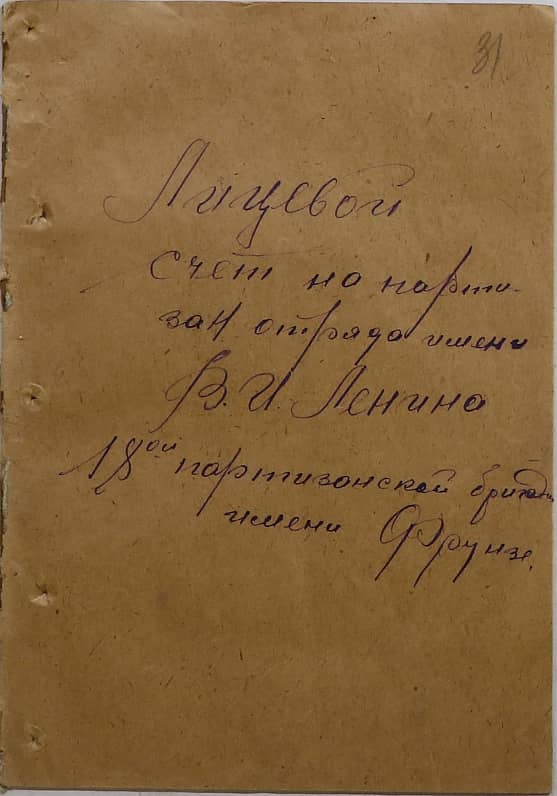 31
Лицевой
счет на парти-
зан отряда имени
В.И. Ленина
18ой партизанской бригады
имени Фрунзе.